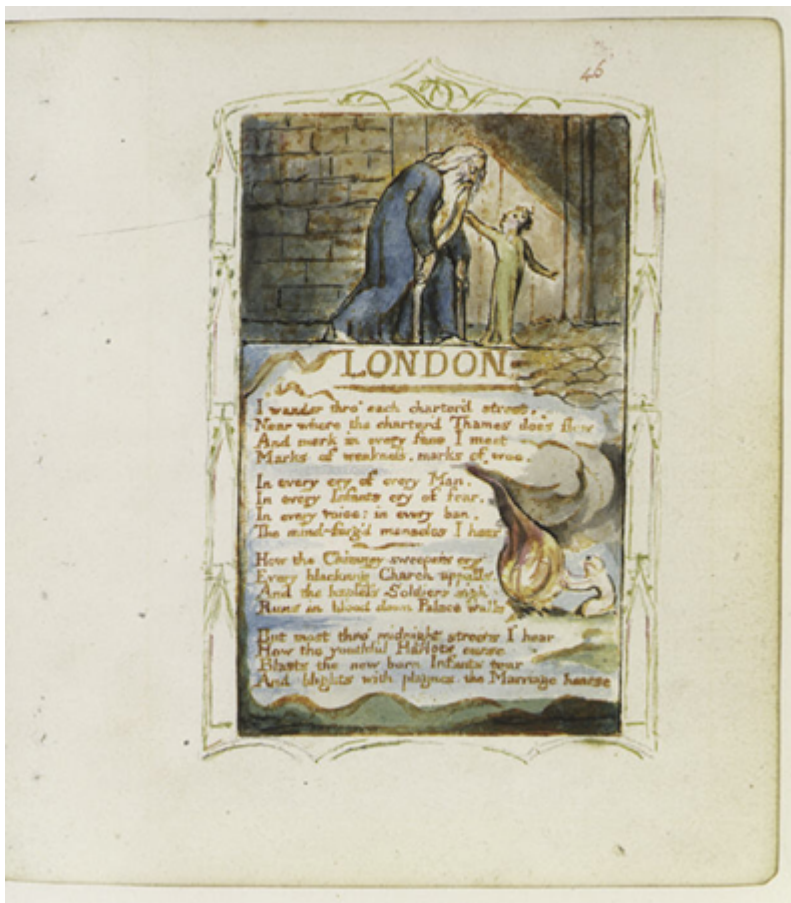 46
LONDON
I wander thro' each charter'd street,
Near where the charter'd Thames does flow
And mark in every face I meet
Marks of weakness, marks of woe.
In every cry of every Man,
In every Infants cry of fear,
In every voice: in every ban,
The mind-forg'd manacles I hear
How the Chimney-sweepers cry
Every blackning Church appalls,
And the hapless Soldiers sigh
Runs in blood down Palace walls
But most thro' midnight streets I hear
How the youthful Harlots curse
Blasts the new born Infants tear
And blights with plagues the Marriage hearse